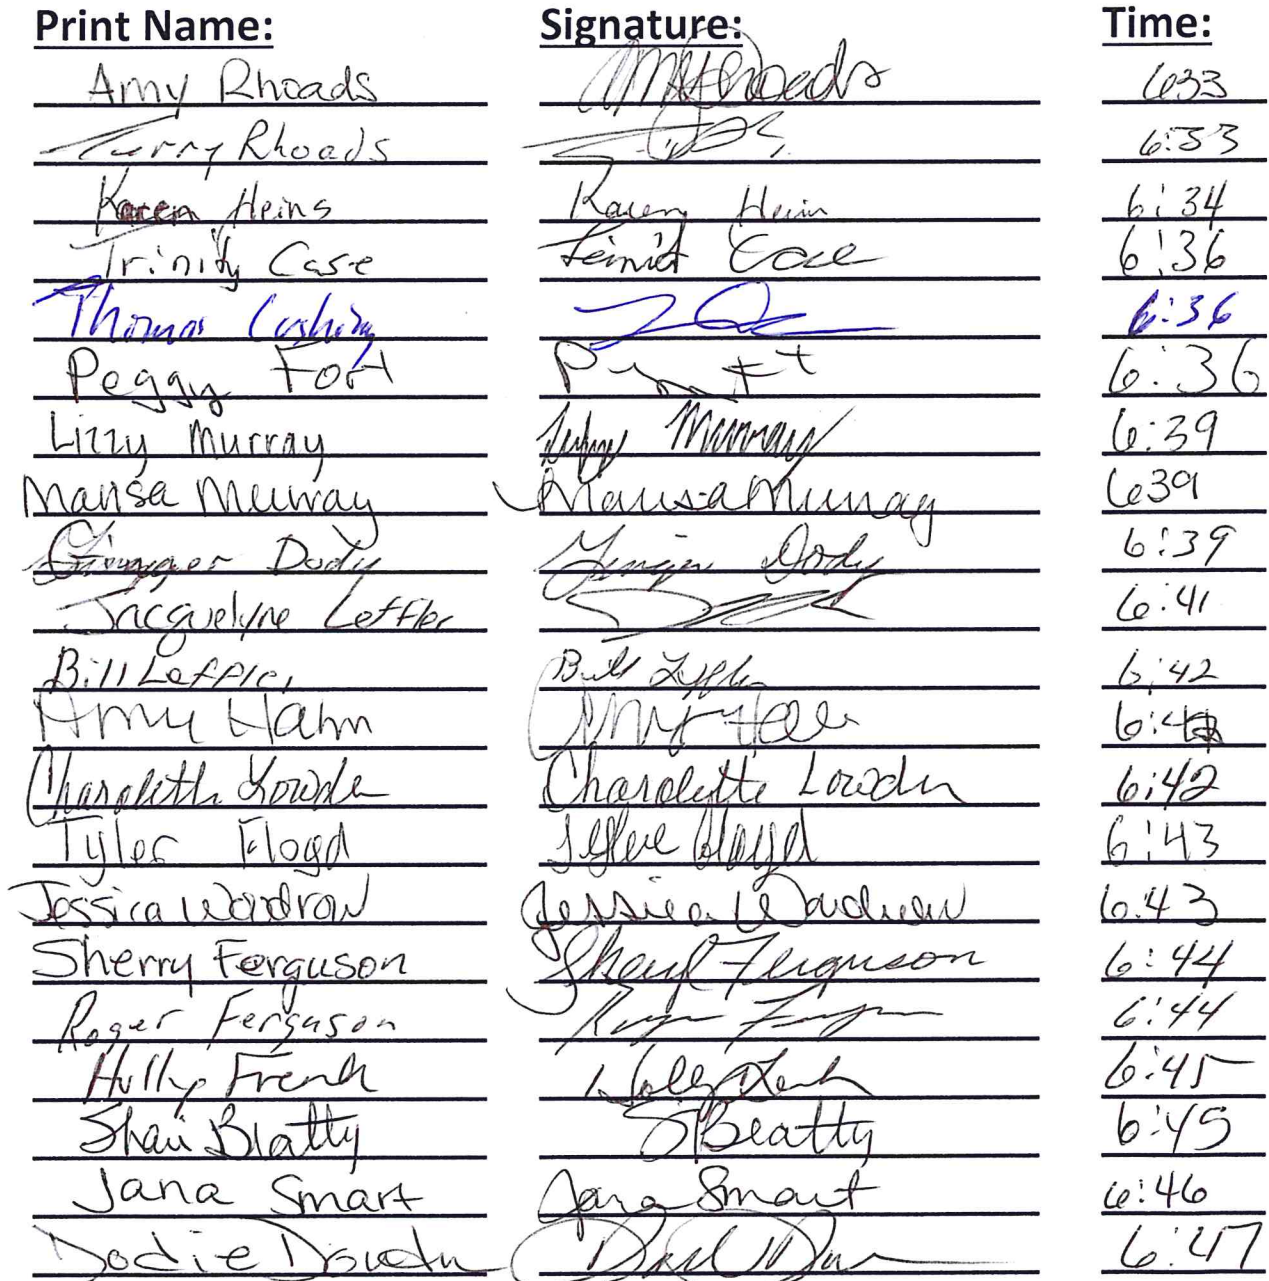 Print Name: Signature: Time:
Amy Rhoads Amy Rhoads 633
Terry Rhoads 6:33
Karen Heins Karen Hein 6:34
Trinity Case Case 6:36
Thomas Cushing 6:36
Peggy Fort 6:36
Lizzy Murray Murray 6:39
Marisa Murray Marisa Murray 639
Ginger Dody Ginger Dody 6:39
Jacquelyne Leffler 6:41
Bill Leffler Bill Leffler 6:42
Amy Hahn Amy 6:42
Charolette Lowden Charolette Lowden 6:42
Tyler Floyd Floyd 6:43
Jessica Woodrow Jessica Woodrow 6:43
Sherry Ferguson Ferguson 6:44
Roger Ferguson Roger 6:44
Holly Frenk Holly 6:45
Beatty SBeatty 6:45
Jana Smart Jana Smart 6:46
Dodie 6:47